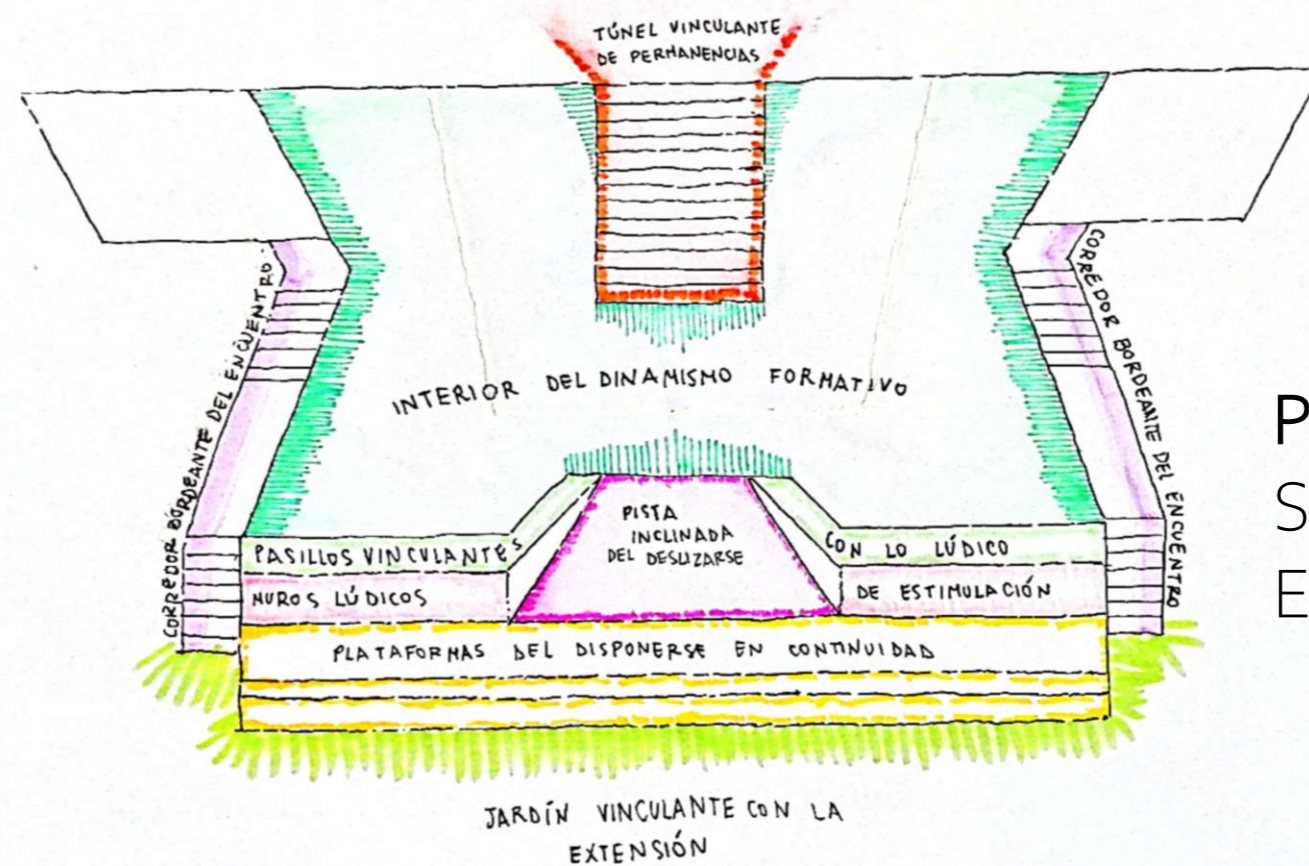 TÚNEL VINCULANTE
DE PERMANENCIAS
CORREDOR BORDEANTE DEL ENCUENTRO
CORREDOR BORDEANTE DEL ENCUENTRO
INTERIOR DEL DINAMISMO FORMATIVO
PISTA
INCLINADA
DEL DESLIZARSE
PASILLOS VINCULANTES CON LO LÚDICO
MUROS LÚDICOS DE ESTIMULACIÓN
PLATAFORMAS DEL DISPONERSE EN CONTINUIDAD
JARDÍN VINCULANTE CON LA
EXTENSIÓN
P
S
E